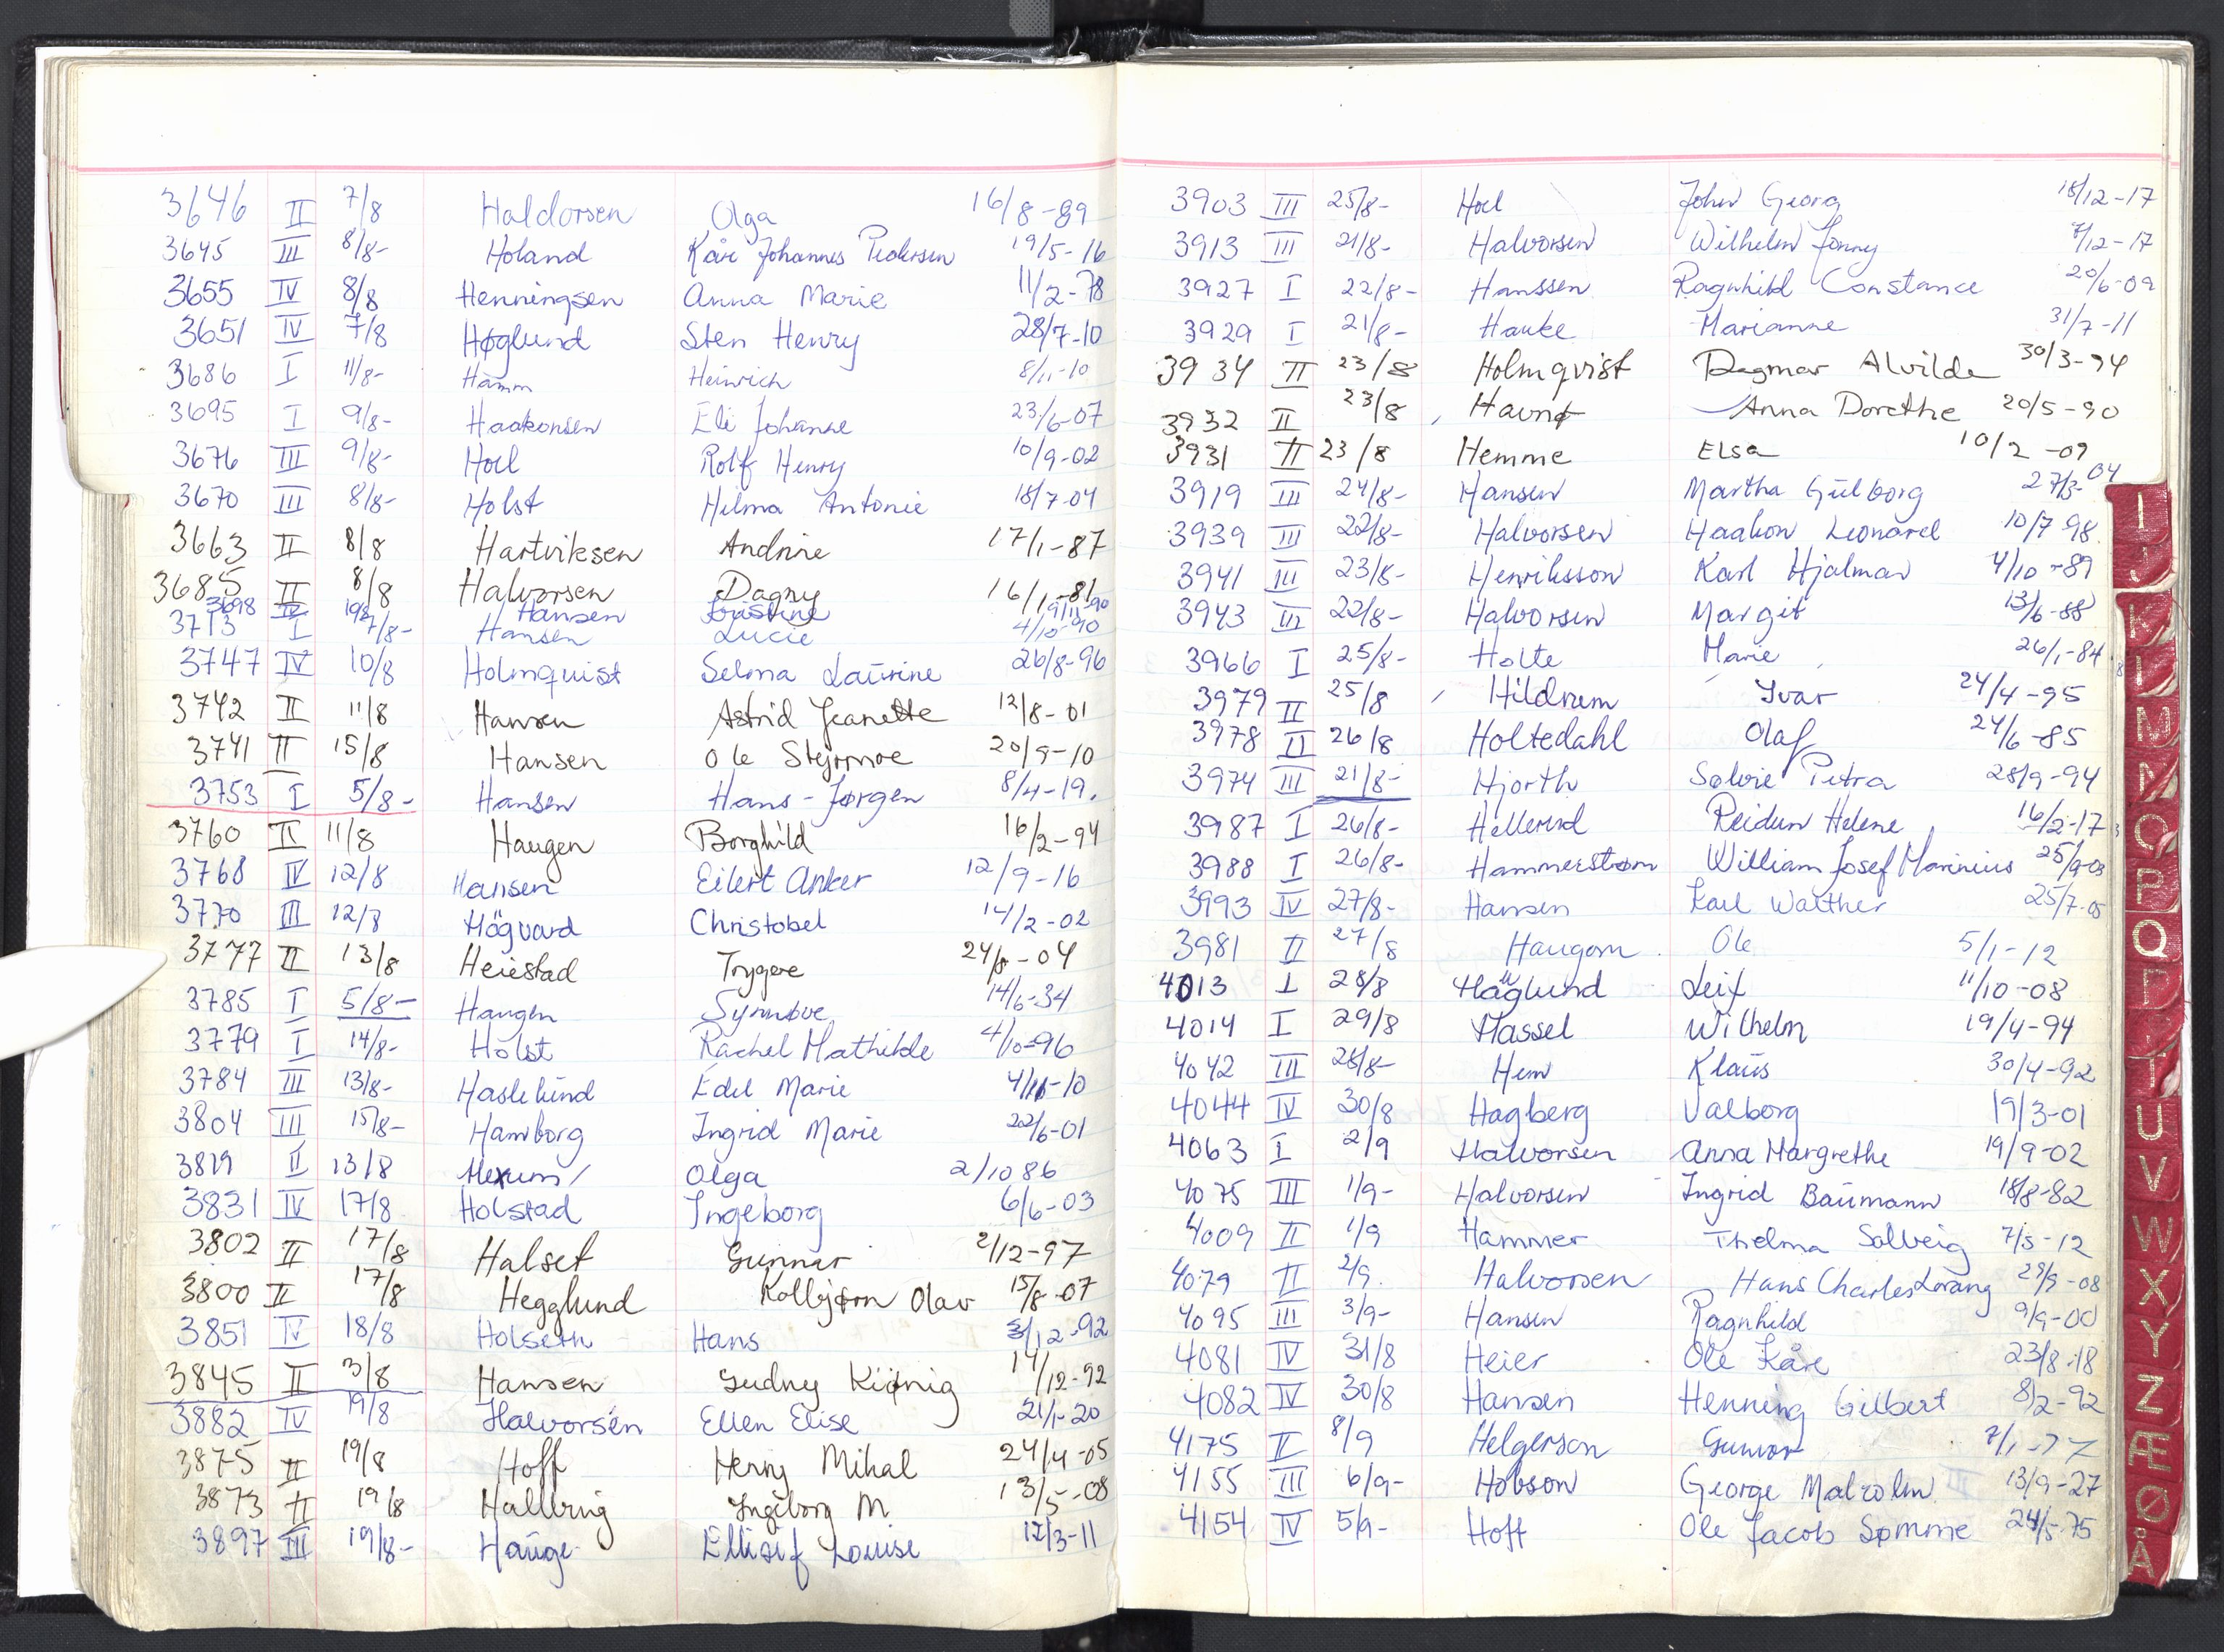 3646 II 7/8 Haldorsen Olga 16/8-89
3645 III 8/8- Holand Kåre Johannes Pedersen 19/5-16
3655 IV 8/8 Henningsen Anna Marie 11/2-78
3651 IV 7/8 Høglund Sten Henry 28/7-10
3686 I 11/8- Hamm Heinrich 8/11-10
3695 I 9/8- Haakonsen Eli Johanne 23/6-07
3676 III 9/8- Hoel Rolf Henry 10/9-02
3670 III 8/8- Holst Hilma Antonie 18/7-04
3663 II 8/8 Hartviksen Andrine 17/1-87
3685 II 8/8 Halvorsen Dagny 16/1-81
3698 IV Hansen
3713 I 7/8- Hansen Lucie 4/10-90
3747 IV 10/8 Holmquist Selma Laurine 26/8-96
3742 II 11/8 Hansen Astrid Jeanette 12/8-01
3741 II 15/8 Hansen Ole Styrmoe 20/9-10
3753 I 5/8- Hansen Hans-Jørgen 8/4-19.
3760 II 11/8 Haugen Borghild 16/2-94
3768 IV 12/8 Hansen Eilert Anker 12/9-16
3770 III 12/8 Högvard Christobel 14/2-02
3777 II 13/8 Heiestad Trygve 24/8-04
3785 I 5/8- Haugen Synnøve 14/6-34
3779 I 14/8- Holst Rachel Mathilde 4/10-96
3784 III 13/8- Haslelund Edel Marie 4/11-10
3804 III 15/8- Hamborg Ingrid Marie 22/6-01
3819 II 13/8 Hexum Olga 2/10 86
3831 IV 17/8 Holstad Ingeborg 6/6-03
3802 II 17/8 Halset Gunnar 2/12-97
3800 II 17/8 Hegglund Kolbjørn Olav 15/8-07
3851 IV 18/8 Holseth Hans 3/12-92
3845 II 3/8 Hansen Gudny Kiønig 14/12-92
3882 IV 19/8 Halvorsen Ellen Elise 21/1-20
3875 II 19/8 Hoff Henry Mikal 24/4-05
3873 II 19/8 Hallbring Ingeborg M 13/5-08
3897 III 19/8- Hauge Ellisif Louise 12/3-11
3903 III 25/8- Hoel John Georg 18/12-17
3913 III 21/8- Halvorsen Wilhelm Jonny 7/12-17
3927 I 22/8- Hanssen Ragnhild Constance 20/6-09
3929 I 21/8- Hauke Marianne 31/7-11
3934 II 23/8 Holmqvist Dagmar Alvilde 30/3-94
3932 II 23/8 Anna Dorethe 20/5-90
3931 II 23/8 Hemme Elsa 10/2-09
3919 III 24/8- Hansen Martha Gulborg 27/3-04
3939 III 22/8- Halvorsen Haakon Leonard 10/7-98
3941 III 23/8- Henriksson Karl Hjalmar 4/10-89
3943 III 22/8- Halvorsen Margit 13/6-88
3966 I 25/8- Holte Marie 26/1-84
3979 II 25/8 Hildrum Ivar 24/4-95
3978 II 26/8 Holtedahl Olaf 24/6-85
3974 III 21/8- Hjorth Solvie Petra 28/9-94
3987 I 26/8- Hellerud Reidun Helene 16/2-17
3988 I 26/8- Hammerstrøm William Josef Marinius 25/9-03
3993 IV 27/8- Hansen Karl Walther 25/7-05
3981 II 27/8 Haugom Ole 5/1-12
4013 I 28/8 Häglund Leif 11/10-08
4014 I 29/8 Hassel Wilhelm 19/4-94
4042 III 28/8- Hem Klaus 30/4-92
4044 IV 30/8 Hagberg Valborg 19/3-01
4063 I 2/9 Halvorsen Anna Margrethe 19/9-02
4075 III 1/9- Halvorsen Ingrid Baumann 18/8-82
4009 II 1/9 Hammer Thelma Solveig 7/5-12
4079 II 2/9. Halvorsen Hans Charles Lorang 29/9-08
4095 III 3/9- Hansen Ragnhild 9/9-00
4081 IV 31/8 Heier Ole Kåre 23/8-18
4082 IV 30/8 Hansen Henning Gilbert 8/2-92
4175 II 8/9 Helgerson Gunvor 7/1-77
4155 III 6/9- Hobson George Malcolm 13/9-27
4154 IV 5/9- Hoff Ole Jacob Sømme 24/5-75
I
J
K
L
M
N
O
P
Q
R
T
U
V
W
X
Y
Z
Æ
Ø
Å